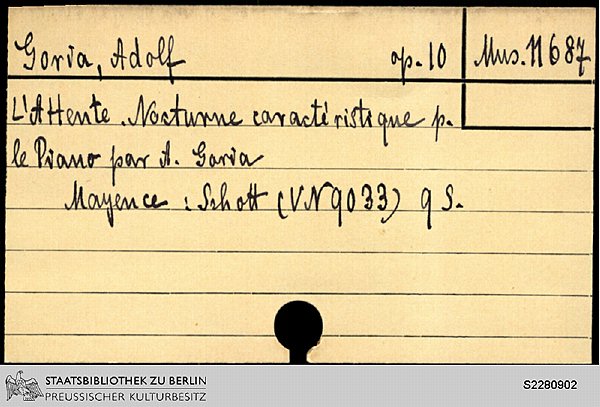 Goria, Adolf op. 10 Mus. 11687
L'Attente. Nocturne caractéristique p.
le Piano par A. Goria
Mayence : Schott (VN 9033) 9 S.
STAATSBIBLIOTHEK ZU BERLIN
PREUSSISCHER KULTURBESITZ
S2280902